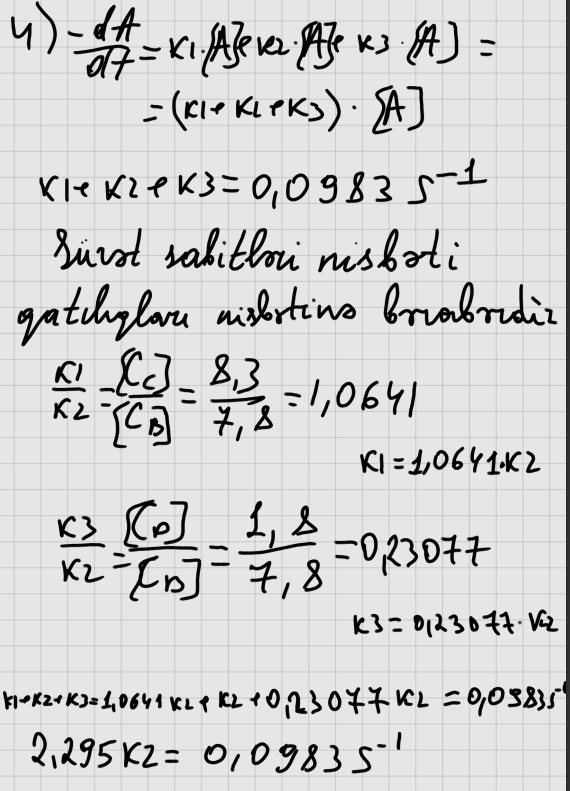 4) -dA/dt = k1·[A] + k2·[A] + k3·[A] =
= (k1 + k2 + k3) · [A]
k1 + k2 + k3 = 0,0983 s^-1
Sürət sabitləri nisbəti
qatılıqları nisbətinə bərabərdir
k1/k2 = [Cc]/[CB] = 8,3/7,8 = 1,0641
k1 = 1,0641·k2
k3/k2 = [CD]/[CB] = 1,8/7,8 = 0,23077
k3 = 0,23077·k2
k1+k2+k3 = 1,0641 k2 + k2 + 0,23077 k2 = 0,0983 s^-1
2,295 k2 = 0,0983 s^-1